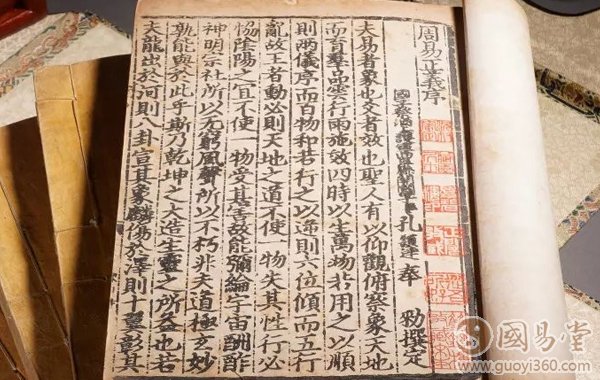 周易正義序
孔穎達奉 勑撰定
夫易者象也爻者效也聖人有以仰觀俯察象天地
而育羣品雲行雨施效四時以生萬物若用之以順
則兩儀序而百物和若行之以逆則六位傾而五行
亂故王者動必則天地之道不使一物失其性行必
恊隂陽之宜不使一物受其害故能彌綸宇宙酬酢
神明宗社所以无窮風聲所以不朽非夫道極玄妙
孰能與於此乎斯乃乾坤之大造生靈之所益也若
夫龍出於河則八卦宣其象麟傷於澤則十翼彰其
國易堂
www.guoyi360.com